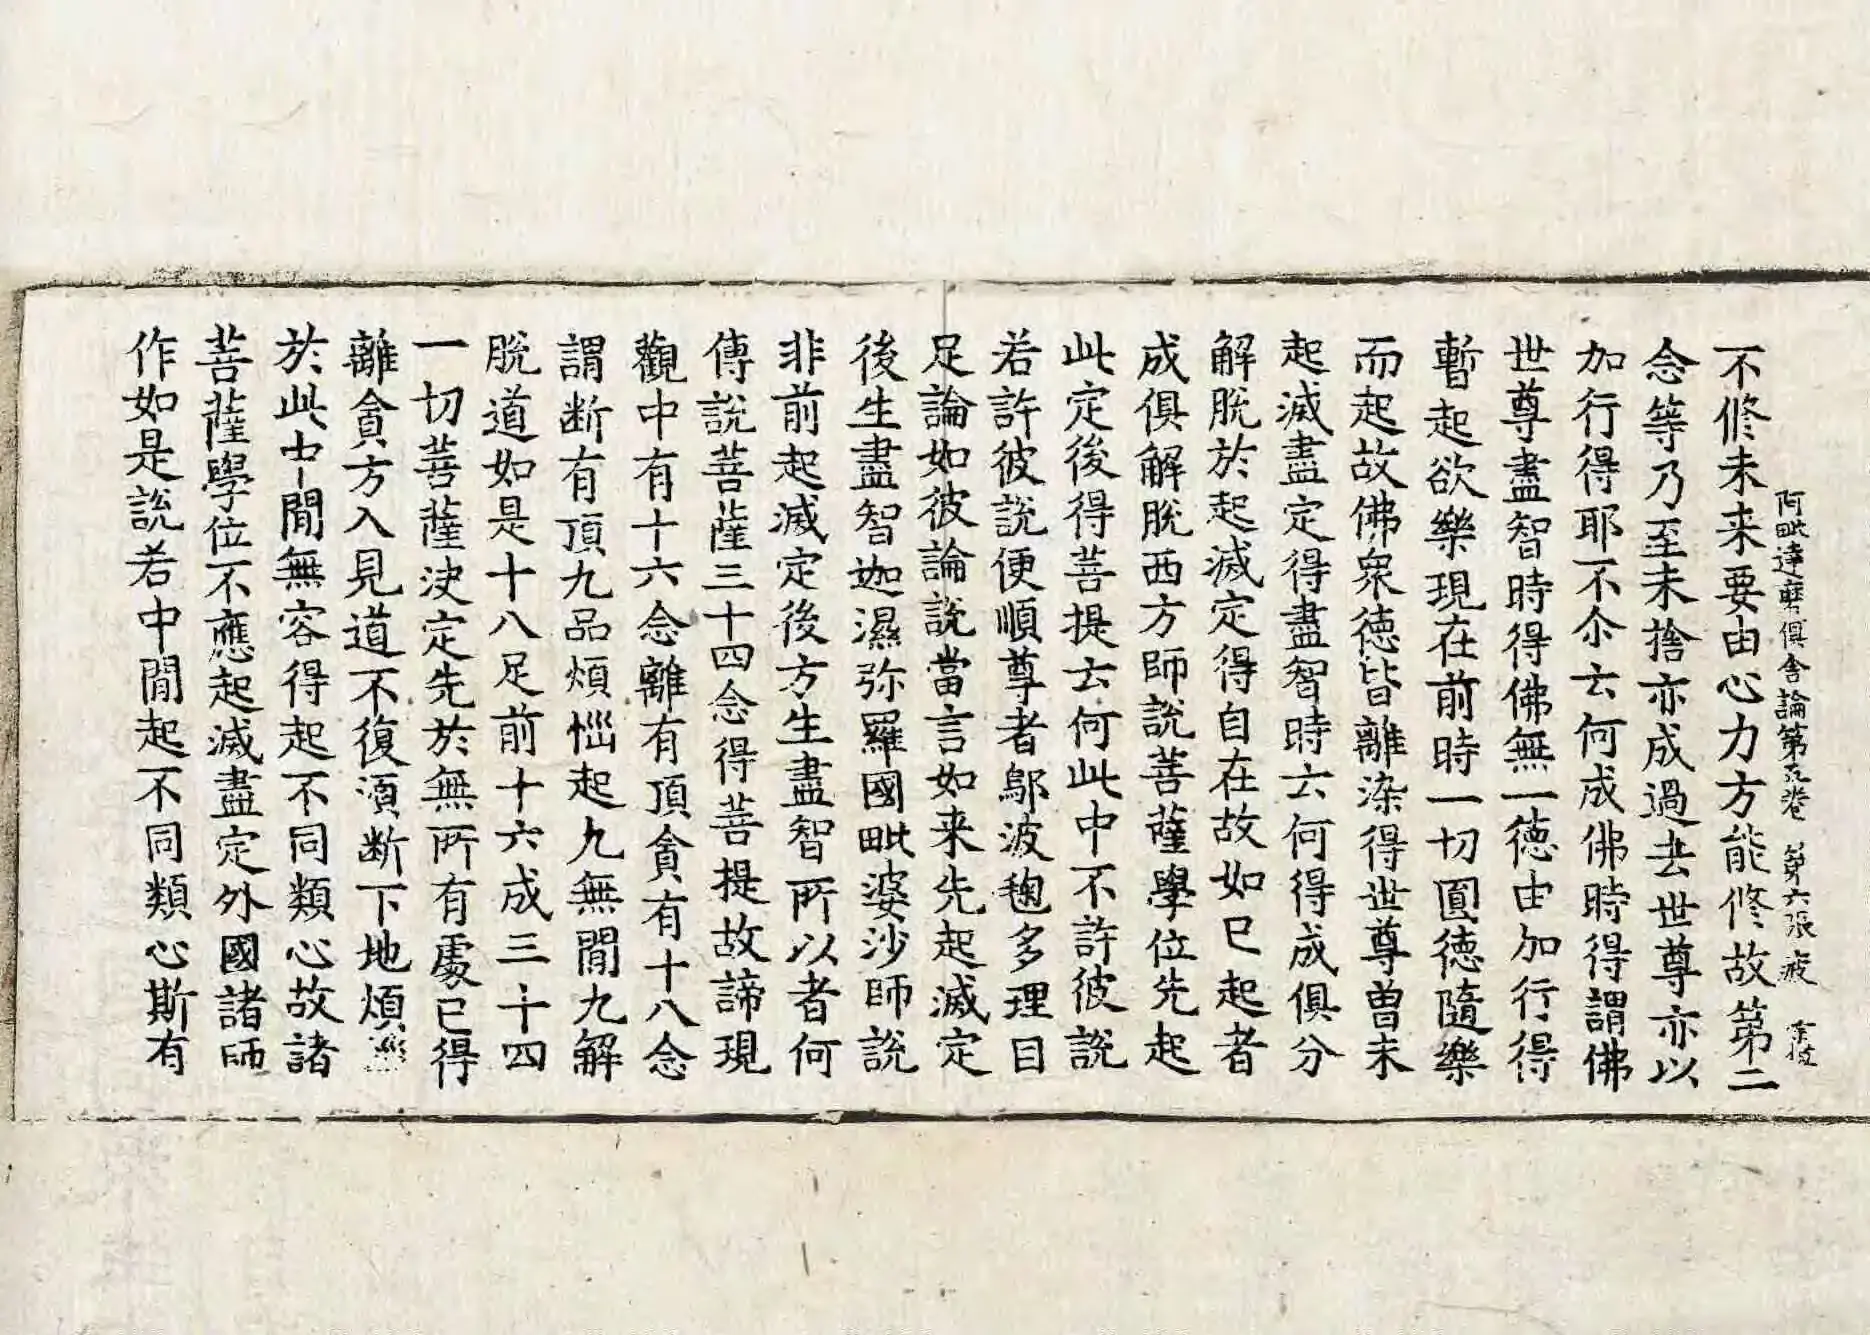 阿毗達磨俱舍論第五卷 第六張 疲
不修未来要由心力方能修故第二
念等乃至未捨亦成過去世尊亦以
加行得耶不尒云何成佛時得謂佛
世尊盡智時得佛無一德由加行得
暫起欲樂現在前時一切圓德隨樂
而起故佛衆德皆離染得世尊曾未
起滅盡定得盡智時云何得成俱分
解脫於起滅定得自在故如已起者
成俱解脫西方師說菩薩學位先起
此定後得菩提云何此中不許彼說
若許彼說便順尊者鄔波毱多理目
足論如彼論說當言如来先起滅定
後生盡智迦濕弥羅國毗婆沙師說
非前起滅定後方生盡智所以者何
傳說菩薩三十四念得菩提故諦現
觀中有十六念離有頂貪有十八念
謂断有頂九品煩惱起九無間九解
脫道如是十八足前十六成三十四
一切菩薩決定先於無所有處已得
離貪方入見道不復湏断下地煩惱
於此中間無容得起不同類心故諸
菩薩學位不應起滅盡定外國諸師
作如是說若中間起不同類心斯有